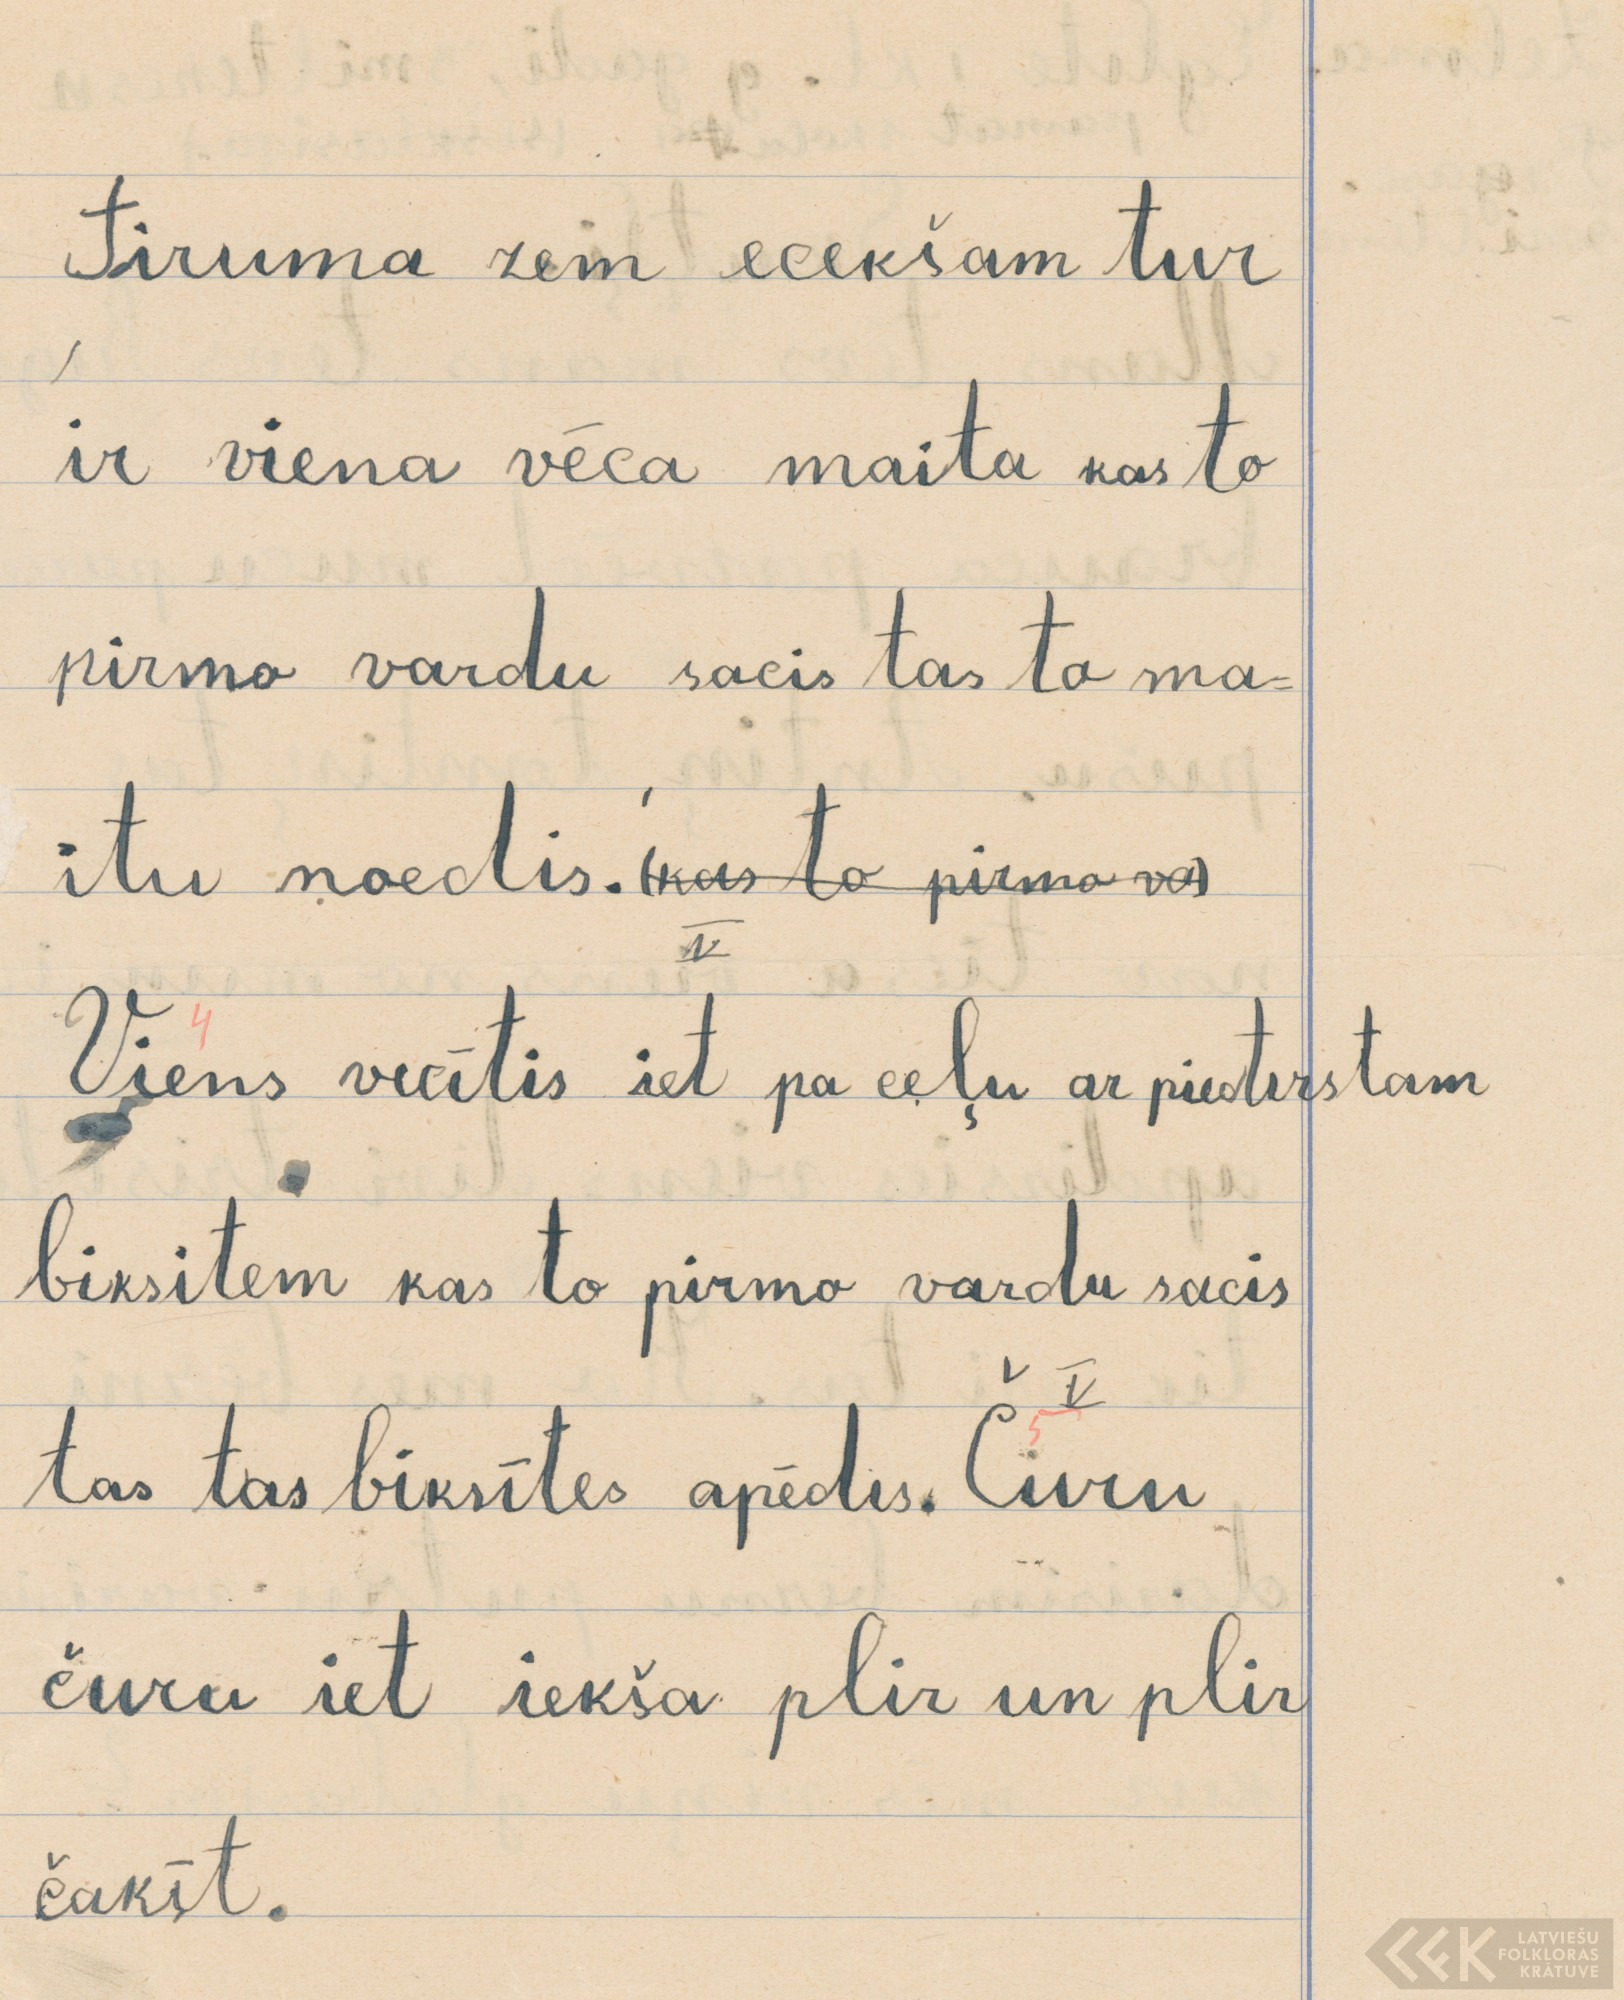 Tiruma zem ecekšam tur
ir viena vēca maita kas to
pirmo vardu sacis tas to ma=
itu noedis. (kas to pirmo va)
IV
4
Viens vecītis iet pa ceļu ar piedirstam
biksitem kas to pirmo vardu sacis
V
5
tas tas biksītes apēdis. Čuru
čuru iet iekša plir un plir
čakīt.
LATVIEŠU
FOLKLORAS
KRĀTUVE